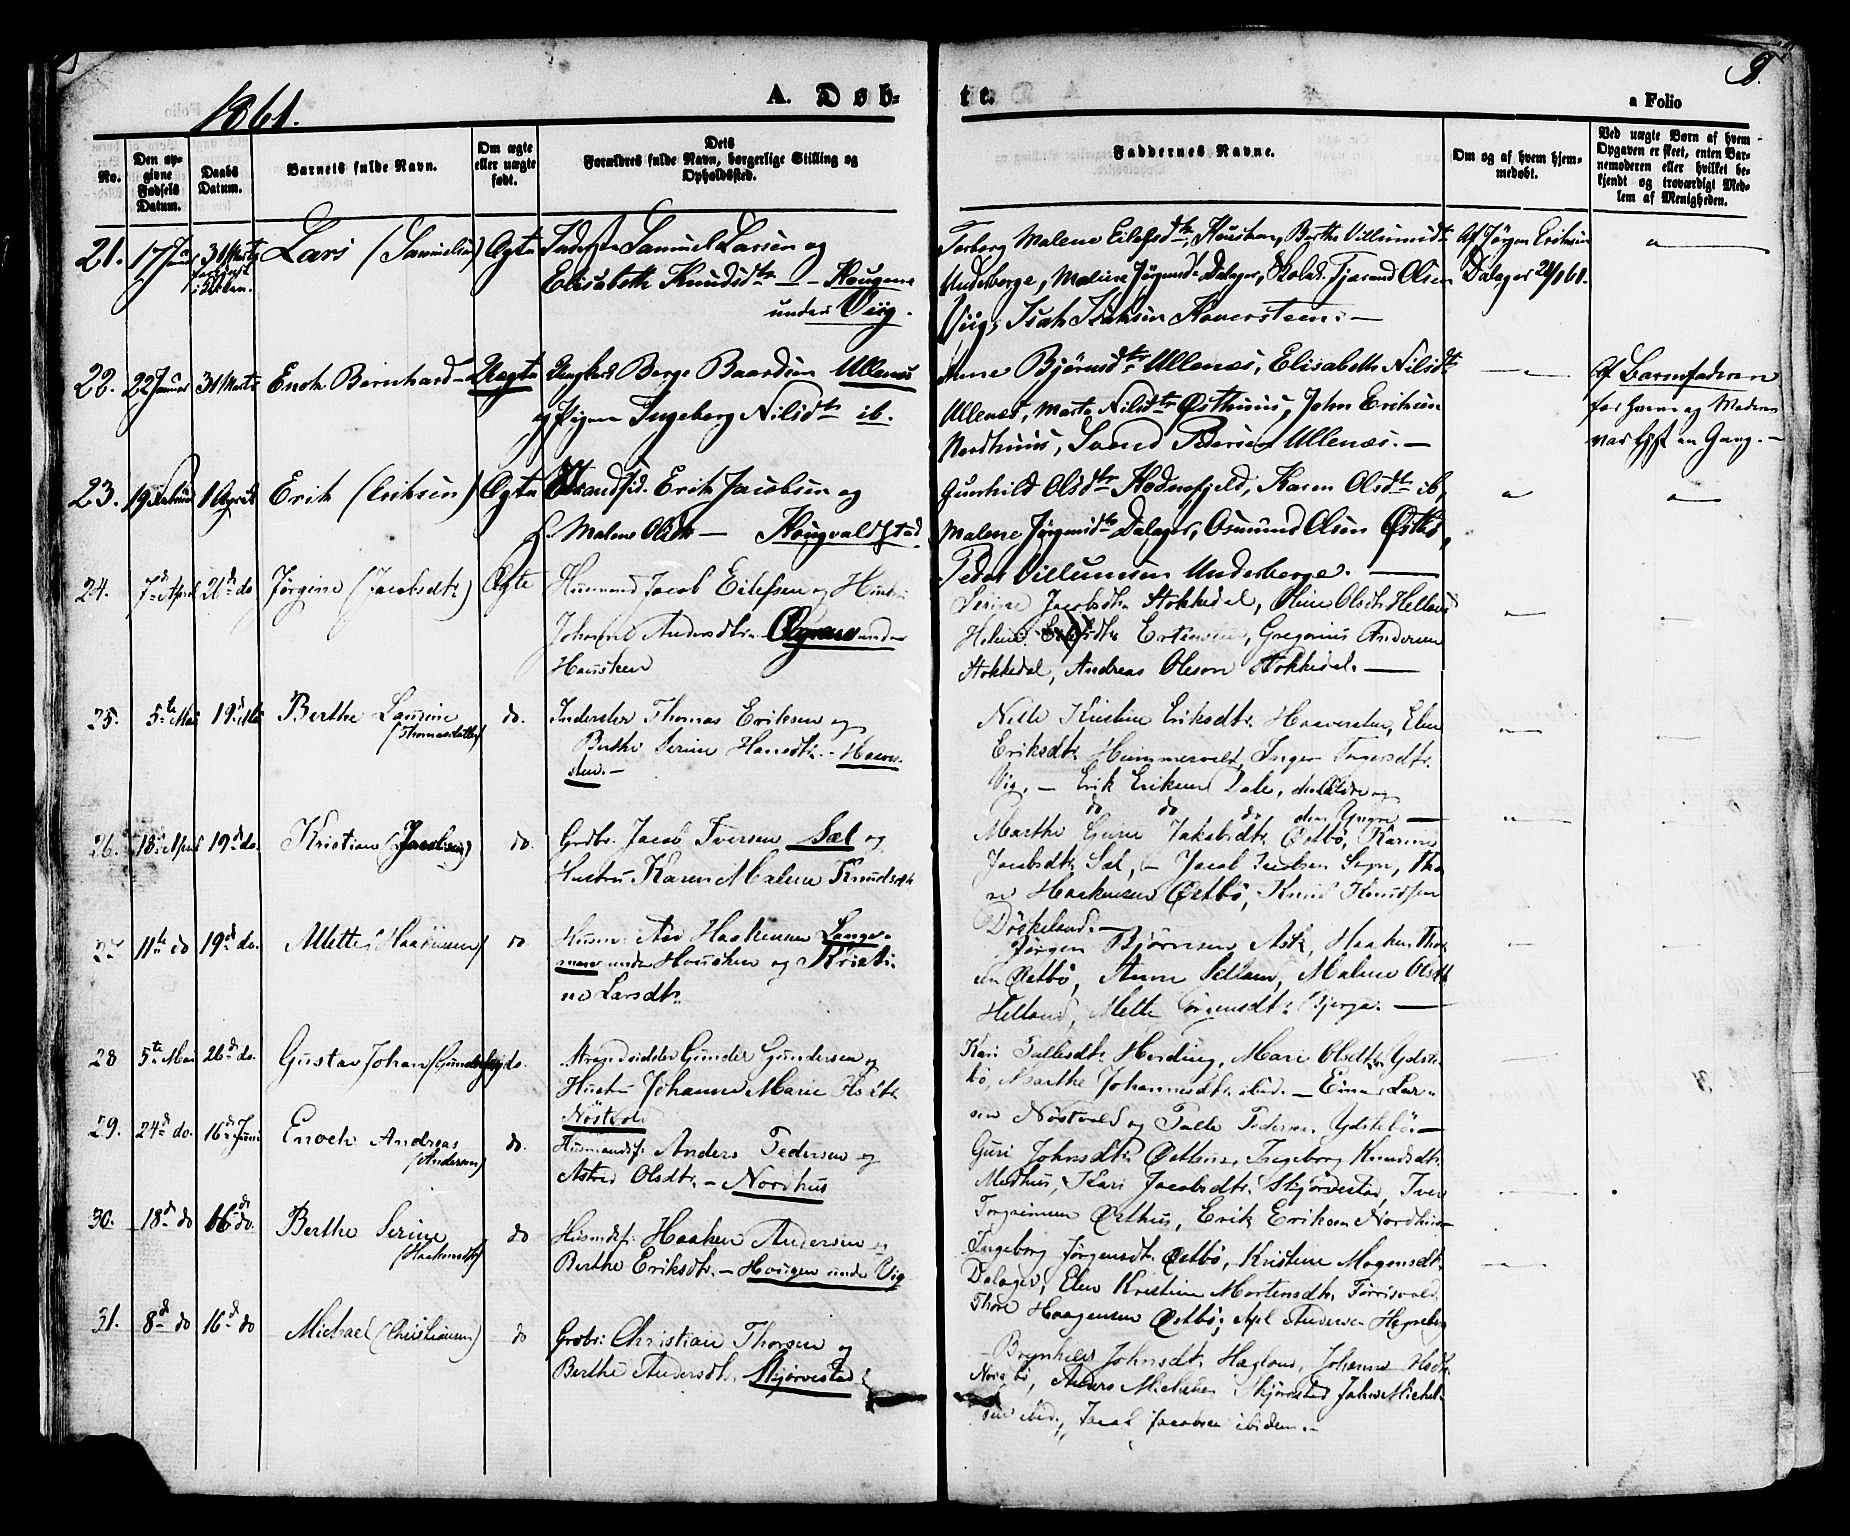 1861.
A. Døb-
te.
8.
a Folio
No.
Den op-
givne
Fødsels
Datum.
Daabs
Datum.
Barnets fulde Navn.
Om ægte
eller uægte
født.
Dets
Forældres fulde Navn, borgerlige Stilling og
Opholdssted.
Faddernes Navne.
Om og af hvem hjem-
medøbt.
Ved uægte Børn af hvem
Opgaven er skeet, enten Bar-
nemoderen eller hvilket be-
kjendt og troværdigt Med-
lem af Menigheden.
21. 17 Januar 31 Marts
Lars (Samuelsen) Ægte
Samuel Larsen og
Elisabeth Knudsdtr - Hougene
under Viig.
Torborg Malene Eilefsdtr Housken, Berthe Villumsdtr
Underberge, Malene Jørgensdtr Dalager, Tjerand Olsen
Viig, Isak Isaksen Haversteen. -
Af Jørgen Eriksen
Dalager
22. 22 Januar 31 Marts
Enok Bernhard - Uægte
Ungkarl Børge Baardsen Ullenæs
og Pigen Ingeborg Nilsdtr ib.
Anne Bjørnsdtr Ullenæs, Elisabeth Nilsdtr
Ullenæs, Marta Nilsdtr Østhuus, John Eriksen
Nordhuus, Svend Pedersen Ullenæs. -
Af Barnefaderen
for hvem og Moderen
var Lejrm. en Gang. -
23. 19 1 April
Erik (Eriksen) Ægte
Strandsid. Erik Jacobsen og
H. Malene Olsdtr - Hougvaldstad
Gunhild Olsdtr Hodnefjeld, Karen Olsdtr ib,
Malene Jørgensdtr Dalager, Osmund Olsen Østbø,
Peder Villumsen Underberge. -
24. 7de April 21de do
Jørgine (Jacobsdtr) Ægte
Husmand Jacob Eilefsen og Hustru
Johanne Andersdtr. Øygrene under
Housken
Serine Jacobsdtr Stokkedal, Oline Olsdtr Helland
Helene Eilefsdtr Erteveen, Gregorius Andersen
Stokkedal, Andreas Olsen Stokkedal. -
25. 5te Mai 19de Mai
Berthe Laurine
(Thomasdatter) do.
Inderster Thomas Eriksen og
Berthe Serine Hansdtr. - Haver-
sten. -
Nelle Kirstine Eriksdtr. Haaversten, Elen
Eriksdtr Hummervold, Inger Torgersdtr.
Vig, - Erik Eriksen Dale, den Eldre og
do do do den Yngre -
26. 18de April 19de do.
Kristian (Jacobsen) do.
Grdbr. Jacob Iversen Sæl og
Hustru Karen Malene Knudsdtr
Marthe Serine Jakobsdtr Østbø, Karine
Jacobsdtr. Sæl, - Jacob Jacobsen Sogn, Tho-
re Haakensen Østbø, Knud Knudsen
Døskeland. -
27 11te do 19de do.
Mette (Haakensen) do
Husm: Asv Haakensen Lange-
under Housken og Kristi-
ne Larsdtr.
Jørgen Bjørnsen Ask, Haaken Thor-
sen Østbø, Anne Helland, Malene Olsdtr
Helland, Mette Jørgensdtr Bjerga. -
28 5te Mai 26de do.
Gustav Johan (Gundersen) do.
Strandsidder Gunder Gundersen og
Hustru Johanne Marie Olsdtr
Nøstvold
Kari Tallesdtr Herding, Mari Olsdtr Ydste-
bø, Marthe Johannesdtr. ibid. - Einar Lar-
sen Nøstvold og Talle Pedersen Ydstebø. -
29. 24de do. 16de Juni
Enoch Andreas
(Andersen) do.
Husmandsf. Anders Pedersen og
Astrid Olsdtr. - Nordhus
Guri Johnsdtr. Østhus, Ingeborg Knudsdtr.
Medhus, Kari Jacobsdtr. Skjørvestad, Iver
Torgrimsen Østhus, Erik Eriksen Nordhus -
30. 18de do 16de do.
Berthe Serine
(Haakensdtr) do
Husmdsf. Haaken Andersen og
Berthe Eriksdtr. - Hougen under Vig
Ingeborg Jørgensdtr. Østbø, Kristine Mogensdtr.
Dalager, Elen Kristine Mortensdtr. Førrisvold.
Thore Haagensen Østbø, Apl Andersen Hegreberg
31. 8de do 16de do
Michael (Christiansen) do
Grdbr. Christian Thorsen og
Berthe Andersdtr. Skjørvestad.
- Brynhild Johnsdtr. Hægland, Johanne Olsdtr.
Anders Michelsen Skjørvestad John Michel-
sen ibid., Jacob Jacobsen ibidem. -